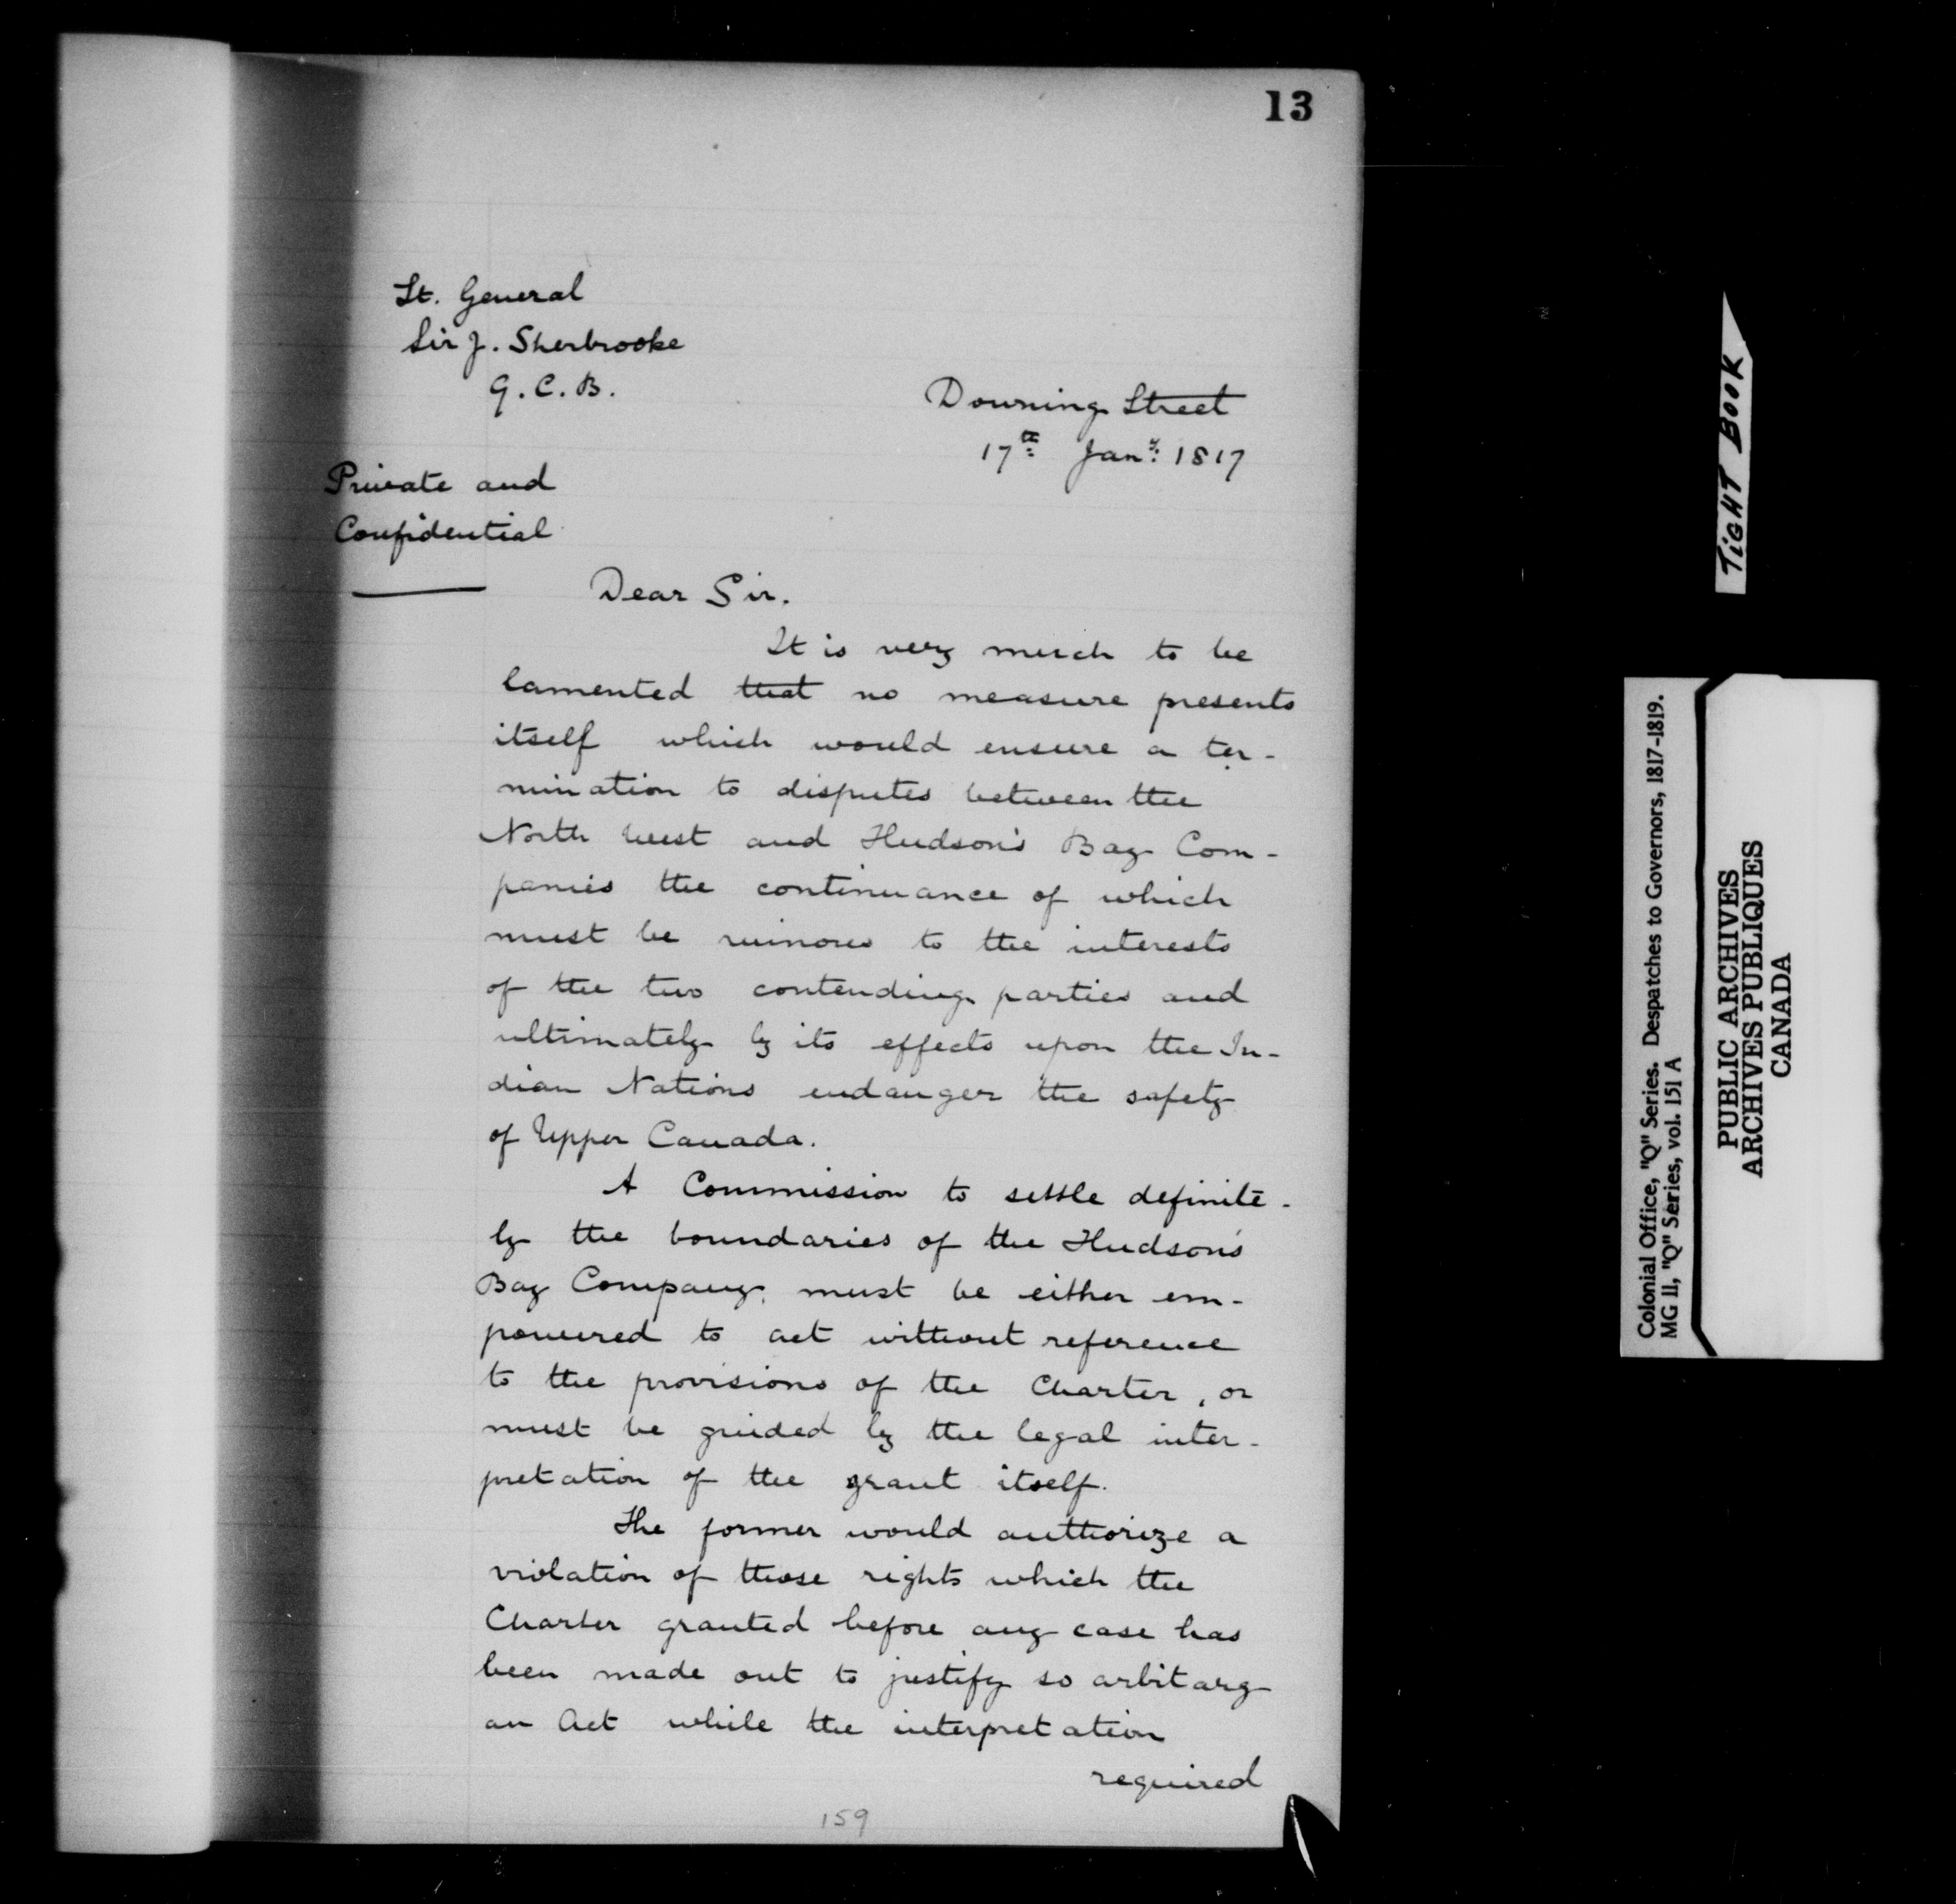 13
Lt. General
Sir J. Sherbrooke
G.C.B.
Downing Street
17th Jany: 1817
Private and
Confidential
Dear Sir.
It is very much to be
lamented that no measure presents
itself which would ensure a ter-
mination to disputes between the
North West and Hudson's Bay Com-
panies the continuance of which
must be ruinous to the interests
of the two contending parties and
ultimately by its effects upon the In-
dian Nations endanger the safety
of Upper Canada.
A Commission to settle definite-
ly the boundaries of the Hudson's
Bay Company, must be either em-
powered to act without reference
to the provisions of the Charter, or
must be guided by the legal inter-
pretation of the grant itself.
The former would authorize a
violation of those rights which the
Charter granted before any case has
been made out to justify so arbitary
an Act while the interpretation
required
159
TIGHT BOOK
Colonial Office, "Q" Series. Despatches to Governors, 1817-1819.
MG 11, "Q" Series, vol. 151 A
PUBLIC ARCHIVES
ARCHIVES PUBLIQUES
CANADA